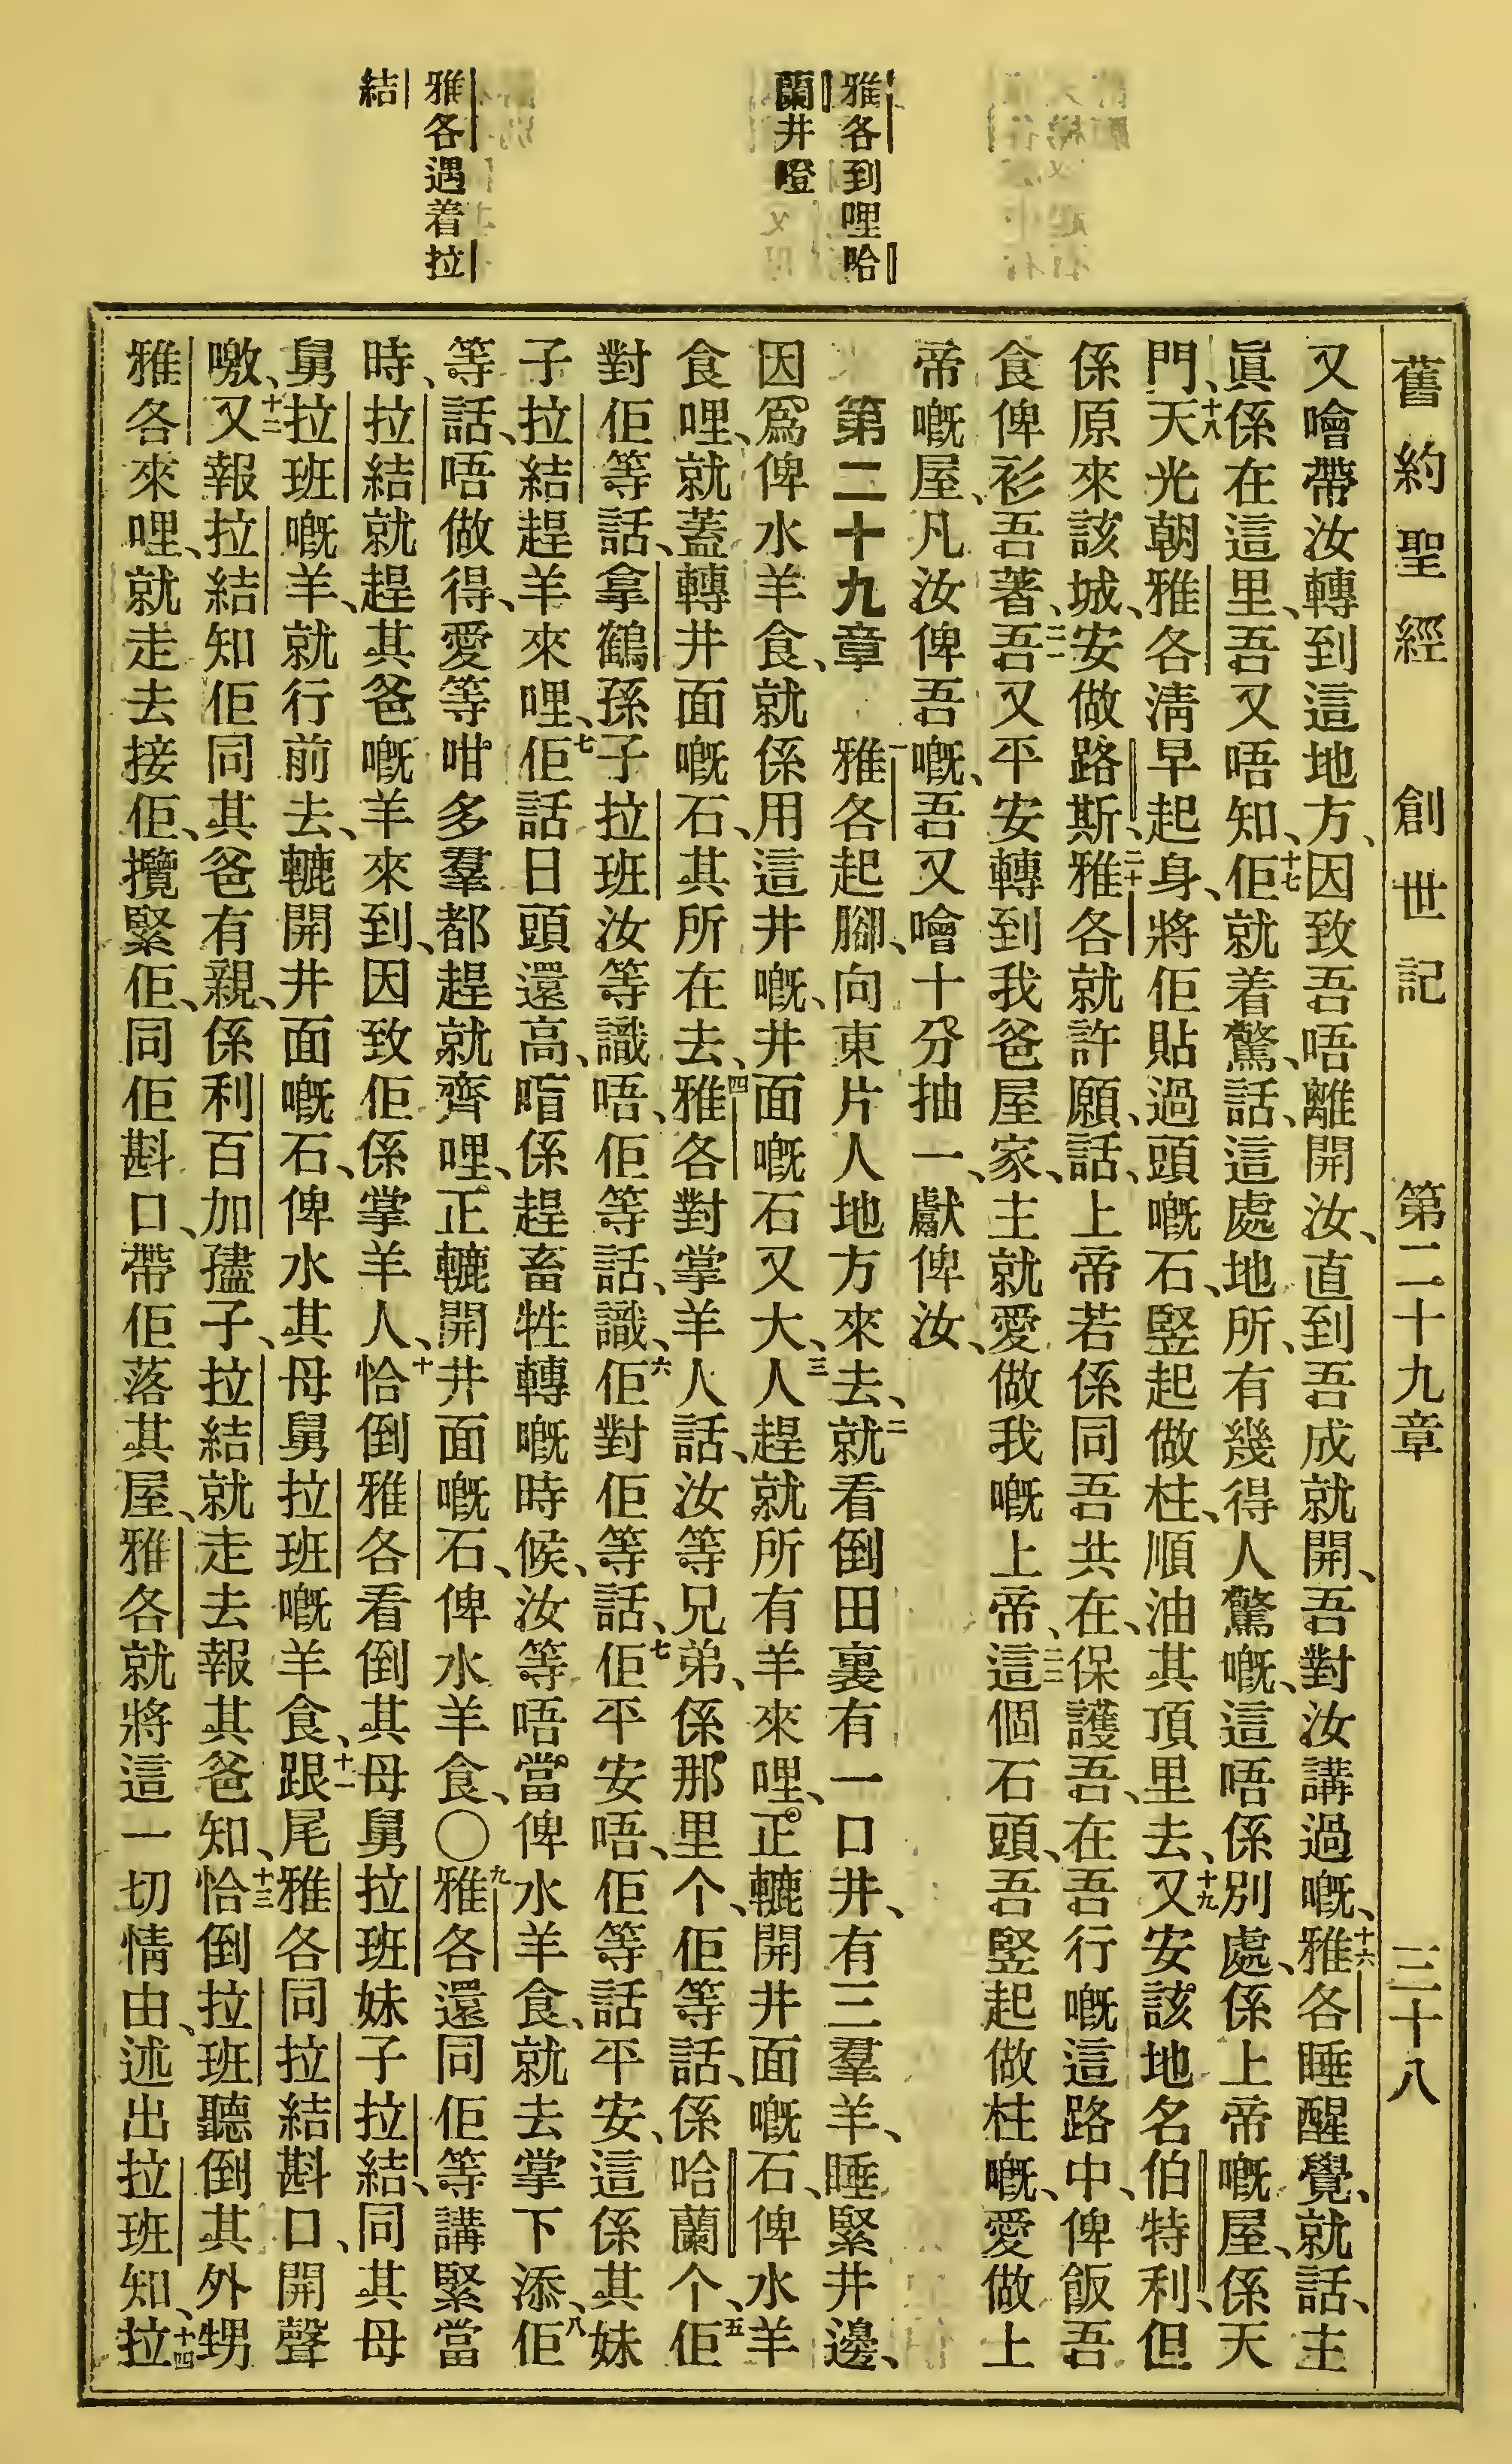 舊約聖經 創世記 第二十九章 三十八
雅各到哩哈
蘭井磴
雅各遇着拉
結
又噲帶汝轉到這地方、因致吾唔離開汝、直到吾成就開、吾對汝講過嘅、十六雅各睡醒覺、就話、主
眞係在這里、吾又唔知、十七佢就着驚、話、這處地所、有幾得人驚嘅、這唔係別處、係上帝嘅屋、係天
門、十八天光朝雅各淸早起身、將佢貼過頭嘅石、竪起做柱、順油其頂里去、十九又安該地名伯特利、但
係原來該城、安做路斯、二十雅各就許願、話、上帝若係同吾共在、保護吾、在吾行嘅這路中、俾飯吾
食俾衫吾著、二一吾又平安轉到我爸屋家、主就愛做我嘅上帝、二二這個石頭、吾竪起做柱嘅、愛做上
帝嘅屋、凡汝俾吾嘅、吾又噲十分抽一、獻俾汝、
第二十九章 一雅各起腳、向東片人地方來去、二就看倒田裏有一口井、有三羣羊、睡緊井邊、
因爲俾水羊食、就係用這井嘅、井面嘅石又大、三人趕就所有羊來哩、正轆開井面嘅石、俾水羊
食哩、就蓋轉井面嘅石、其所在去、四雅各對掌羊人話、汝等兄弟、係那里个、佢等話、係哈蘭个、五佢
對佢等話、拿鶴孫子拉班汝等識唔、佢等話、識、六佢對佢等話、七佢平安唔、佢等話平安、這係其妹
子拉結趕羊來哩、七佢話日頭還高、唔係趕畜牲轉嘅時候、汝等唔當俾水羊食、就去掌下添、八佢
等話、唔做得、愛等咁多羣都趕就齊哩、正轆開井面嘅石、俾水羊食、〇九雅各還同佢等講緊當
時、拉結就趕其爸嘅羊來到、因致佢係掌羊人、十恰倒雅各看倒其母舅拉班妹子拉結、同其母
舅拉班嘅羊、就行前去、轆開井面嘅石、俾水其母舅拉班嘅羊食、十一跟尾雅各同拉結斟口、開聲
噭、十二又報拉結知佢同其爸有親、係利百加孻子、拉結就走去報其爸知、十三恰倒拉班聽倒其外甥
雅各來哩、就走去接佢、攬緊佢、同佢斟口、帶佢落其屋、雅各就將這一切情由、述出拉班知、十四拉